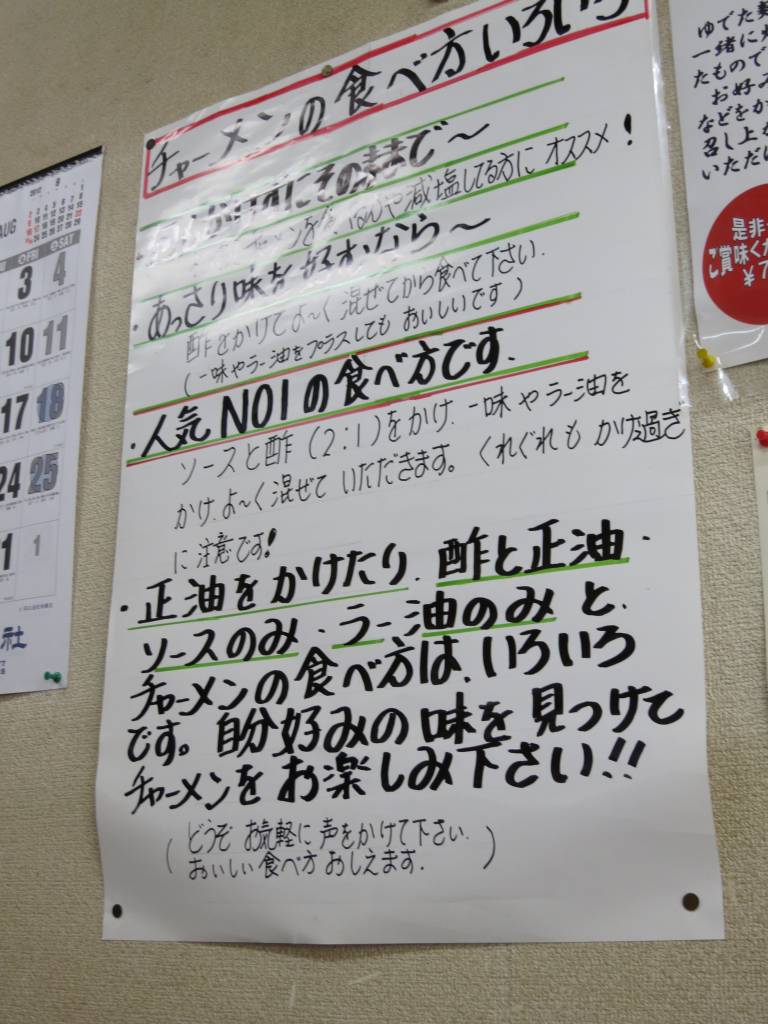 チャーメンの食べ方いろいろ
にそのままで〜
減塩してる方に オススメ!
・あっさり味を好むなら〜
酢をかけてよ〜く混ぜてから食べて下さい.
(一味やラー油をプラスしても おいしいです)
・人気NO1の食べ方です.
ソースと酢(2:1)をかけ.一味やラー油を
かけ.よ〜く混ぜて いただきます。くれぐれも かけ過ぎ
に注意です!
・正油をかけたり.酢と正油・
ソースのみ・ラー油のみと.
チャーメンの食べ方は、いろいろ
です。自分好みの味を見つけて
チャーメンをお楽しみ下さい!!
(どうぞ お気軽に 声をかけて下さい.
おいしい食べ方 おしえます.)
2012
8
AUG
FRI SAT
3 4
10 11
17 18
24 25
1
社
ゆでた麺
一緒に
たもので
お好み
などをか
召し上が
いただけ
是非
ご賞味くだ
¥7